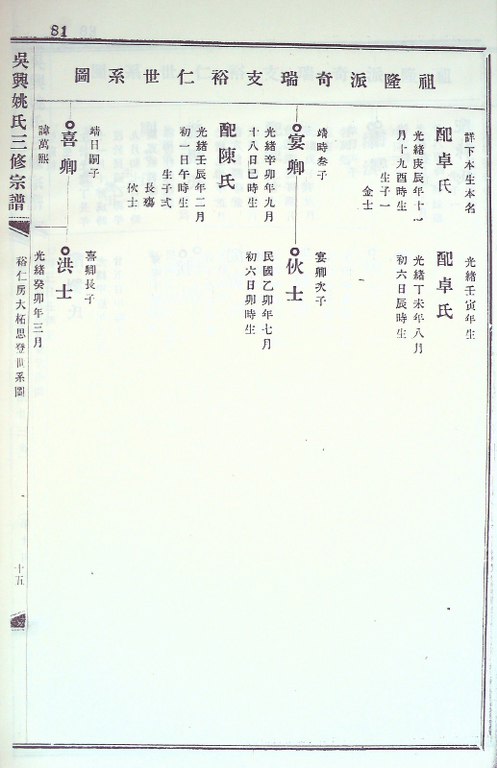 81
祖隆派奇瑞支裕仁世系圖
詳下本生本名
配卓氏
光緒庚辰年十一
月十九酉時生
生子一
金士
靖時叁子
宴卿
光緒辛卯年九月
十八日巳時生
配陳氏
光緒壬辰年二月
初一日午時生
生子弍
長殤
伙士
靖日嗣子
喜卿
諱萬熙
光緒壬寅年生
配卓氏
光緒丁未年八月
初六日辰時生
宴卿次子
伙士
民國乙卯年七月
初六日卯時生
喜卿長子
洪士
光緒癸卯年三月
吳興姚氏三修宗譜
裕仁房大柘思登世系圖
十五